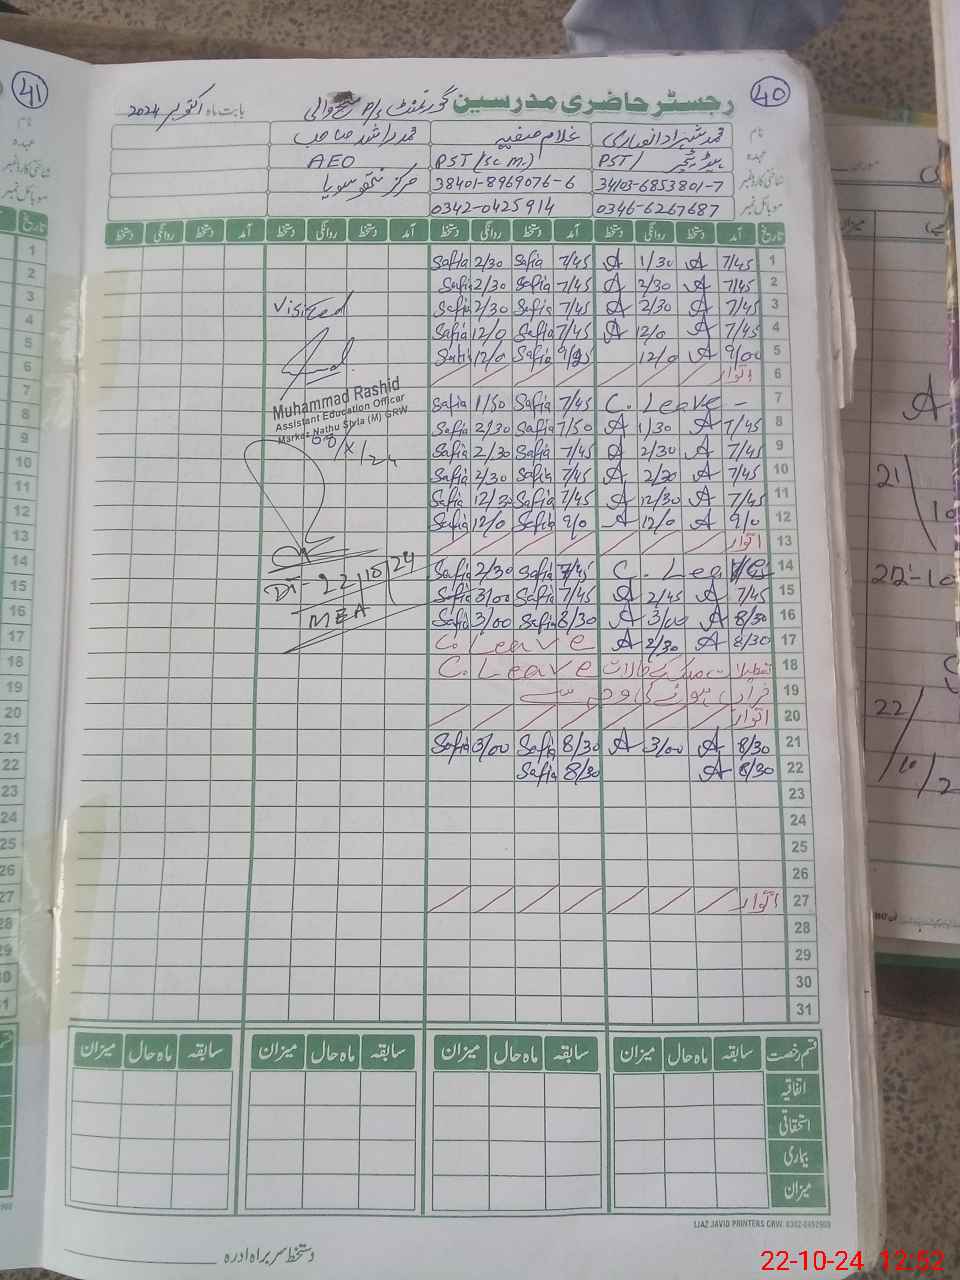 41
40
رجسٹر حاضری مدرسین گورنمنٹ P/S بابت ماہ اکتوبر 2024
نام محمد شہزاد انصاری غلام صفیہ محمد راشد صاحب
عہدہ PST/ ہیڈ ٹیچر PST/(Sc.M.) AEO
شناختی کارڈ نمبر 34103-6853801-7 38401-8969076-6 مرکز نتھو سویا
موبائل نمبر 0346-6267687 0342-0425914
تاریخ آمد دستخط روانگی دستخط آمد دستخط روانگی دستخط آمد دستخط روانگی دستخط آمد دستخط روانگی دستخط
1 7/45 A 1/30 A 7/45 Safia 2/30 Safia
2 7/45 A 2/30 A 7/45 Safia 2/30 Safia
3 7/45 A 2/30 A 7/45 Safia 2/30 Safia
4 7/45 A 12/0 A 7/45 Safia 12/0 Safia
5 9/00 A 12/0 Safia 12/0 Safia
6 اتوار
7 C. Leave - 7/45 Safia 1/50 Safia
8 7/45 A 1/30 A 7/50 Safia 2/30 Safia
9 7/45 A 2/30 A 7/45 Safia 2/30 Safia
10 7/45 A 2/30 A 7/45 Safia 2/30 Safia
11 7/45 A 12/30 A 7/45 Safia 12/30 Safia
12 9/0 A 12/0 A 9/0 Safia 12/0 Safia
13 اتوار
14 C. Lea 7/45 Safia 2/30 Safia
15 7/45 A 2/45 A 7/45 Safia 3/00 Safia
16 8/30 A 3/00 A 8/30 Safia 3/00 Safia
17 8/30 A 2/30 A C. Leave
18 C. Leave
19 ہونے کی وجہ سے
20 اتوار
21 8/30 A 3/00 A 8/30 Safia 3/00 Safia
22 8/30 A 8/30 Safia
23
24
25
26
27 اتوار
28
29
30
31
Visited
Muhammad Rashid
Assistant Education Officer
Markaz Nathu Sivia (M) GRW
08/X/24
DT- 22/10/24
MEA
قسم رخصت سابقہ ماہ حال میزان سابقہ ماہ حال میزان سابقہ ماہ حال میزان سابقہ ماہ حال میزان
اتفاقیہ
استحقاقی
بیماری
میزان
IJAZ JAVID PRINTERS GRW.
دستخط سربراہ ادارہ
A
21
10
22-10
22/10/2
22-10-24 12:52